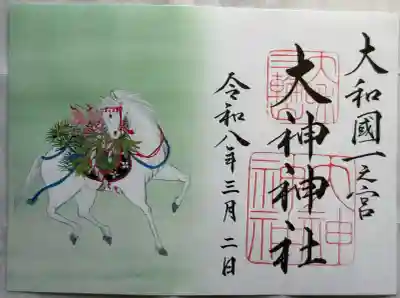 大和國一之宮
大神神社
令和八年三月二日